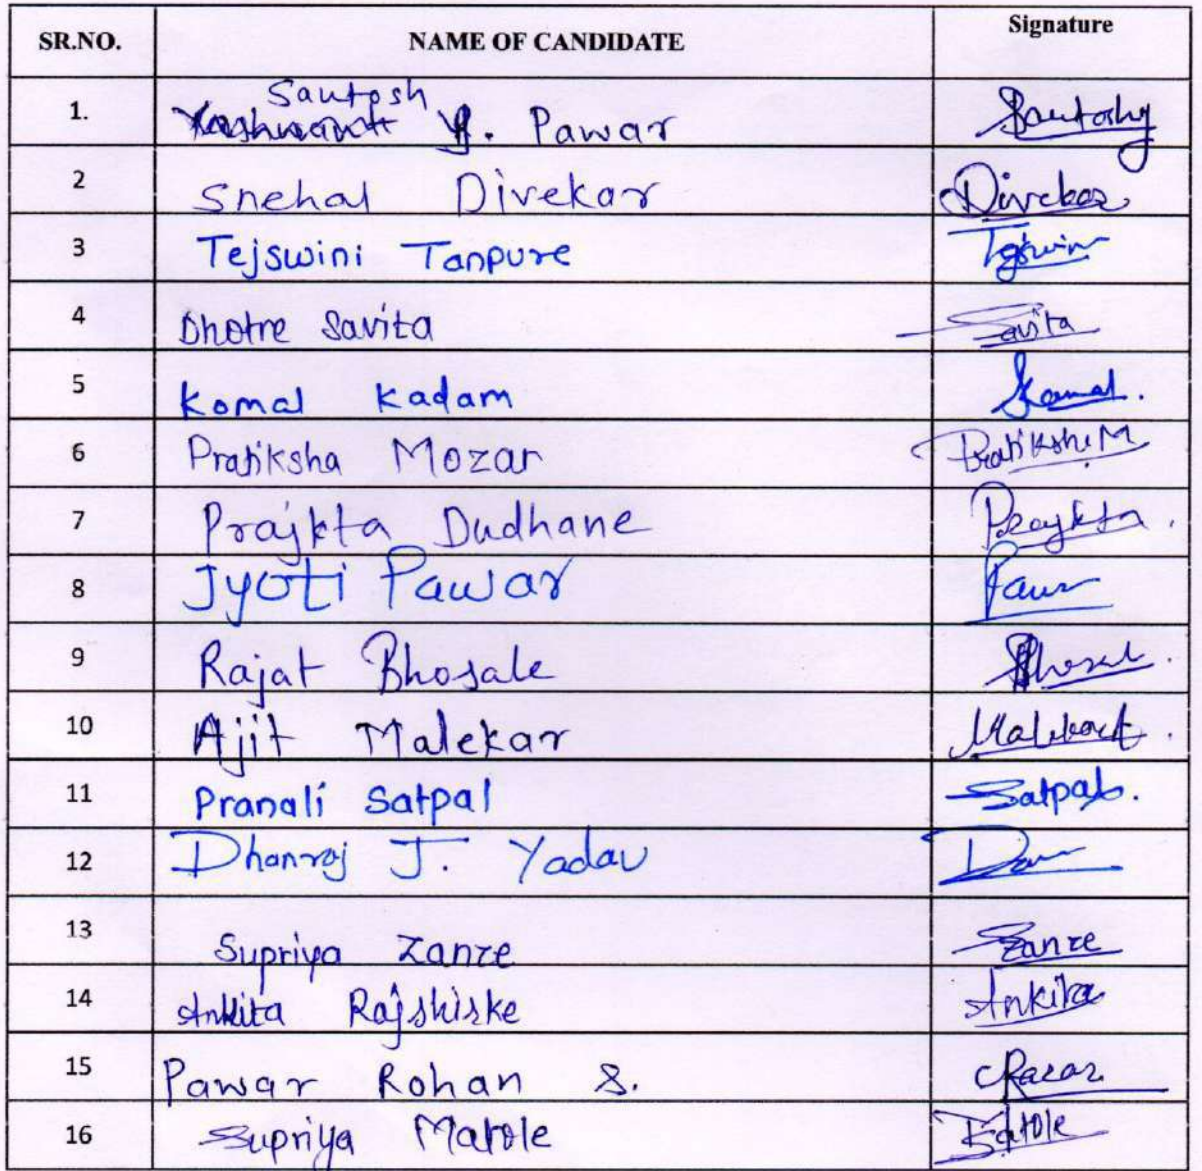 SR.NO. NAME OF CANDIDATE Signature
Santosh
1. Yashwant Y. Pawar Santosh
2 Snehal Divekar Divekar
3 Tejswini Tanpure Tejswini
4 Dhotre Savita Savita
5 Komal Kadam Komal.
6 Pratiksha Mozar Pratiksha M
7 Prajkta Dudhane Prajkta.
8 Jyoti Pawar Pawar
9 Rajat Bhosale Bhosale.
10 Ajit Malekar Malekar.
11 Pranali Satpal Satpal.
12 Dhanraj J. Yadav
13 Supriya Zanre Zanre
14 Ankita Rajshirke Ankita
15 Pawar Rohan S.
16 Supriya Matole